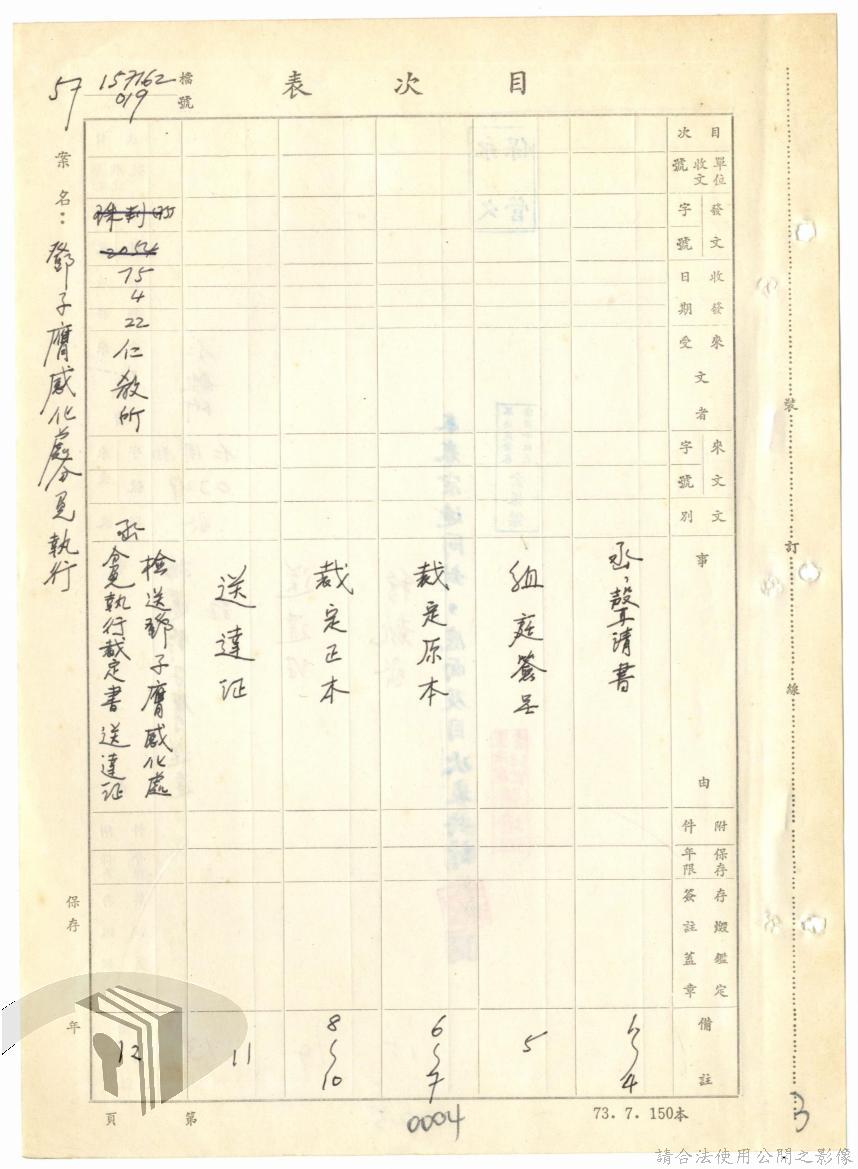 目次表
檔號
157162
019
57
案名：鄧子膺感化處分免執行
目次
單位收文號
發文字號
收發日期
來文受者
來文字號
文別
事由
附件
保存年限
存燬鑑定簽註蓋章
備註
聲請書
1~4
組庭簽呈
5
裁定原本
6~7
裁定正本
8~10
送達証
11
2054
75
4
22
仁教所
函
檢送鄧子膺感化處
分免執行裁定書送達証
12
保存 年
裝訂線
第 頁
0004
73. 7. 150本
3
請合法使用公開之影像